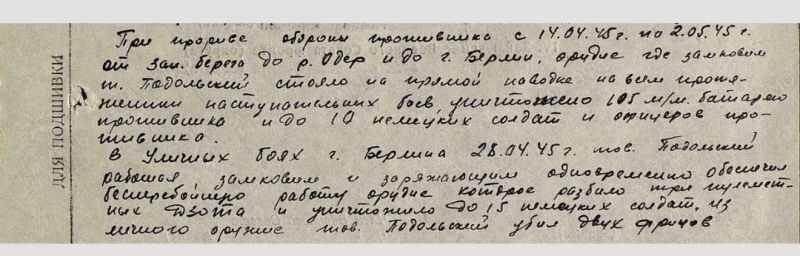 При прорыве обороны противника с 14.04.45г. по 2.05.45г.
от зап. берега до р. Одер и до г. Берлин, орудие где замковым
т. Подольский стояло на прямой наводке на всем протя-
жении наступательных боев, уничтожено 105 м/м. батарею
противника и до 10 немецких солдат и офицеров про-
тивника.
В уличных боях г. Берлина 28.04.45г. тов. Подольский
работая замковым и заряжающим одновременно обеспечил
бесперебойную работу орудие которое разбило три пулемет-
ных Дзота и уничтожило до 15 немецких солдат, из
личного оружие тов. Подольский убил двух фрицов
ДЛЯ ПОДШИВКИ